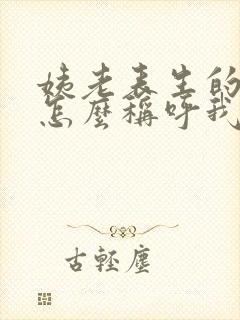 姨老表生的
怎麼稱呼我
古輕塵